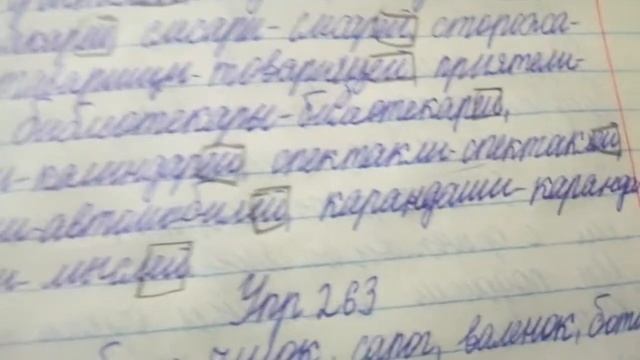 слесари-слесарей сторожа-
товарищи-товарищей приятели-
библиотекари-библиотекарей,
и-календарей, спектакли-спектаклей,
ли-автомобилей карандаши-каранда
и-мыслей
Упр 263
чулок, сапог, валенок, бота